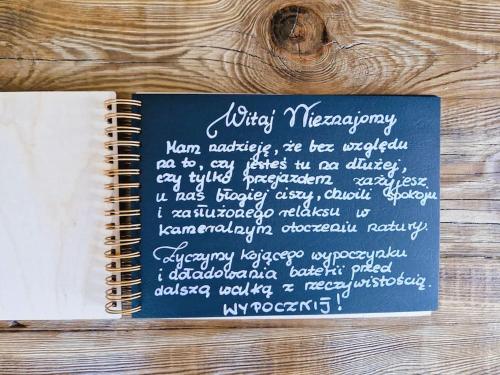 Witaj Nieznajomy
Mam nadzieję, że bez względu
na to, czy jesteś tu na dłużej,
czy tylko przejazdem zażyjesz
u nas błogiej ciszy, chwili spokoju
i zasłużonego relaksu w
kameralnym otoczeniu natury.
Życzymy kojącego wypoczynku
i doładowania baterii przed
dalszą walką z rzeczywistością.
WYPOCZNIJ!